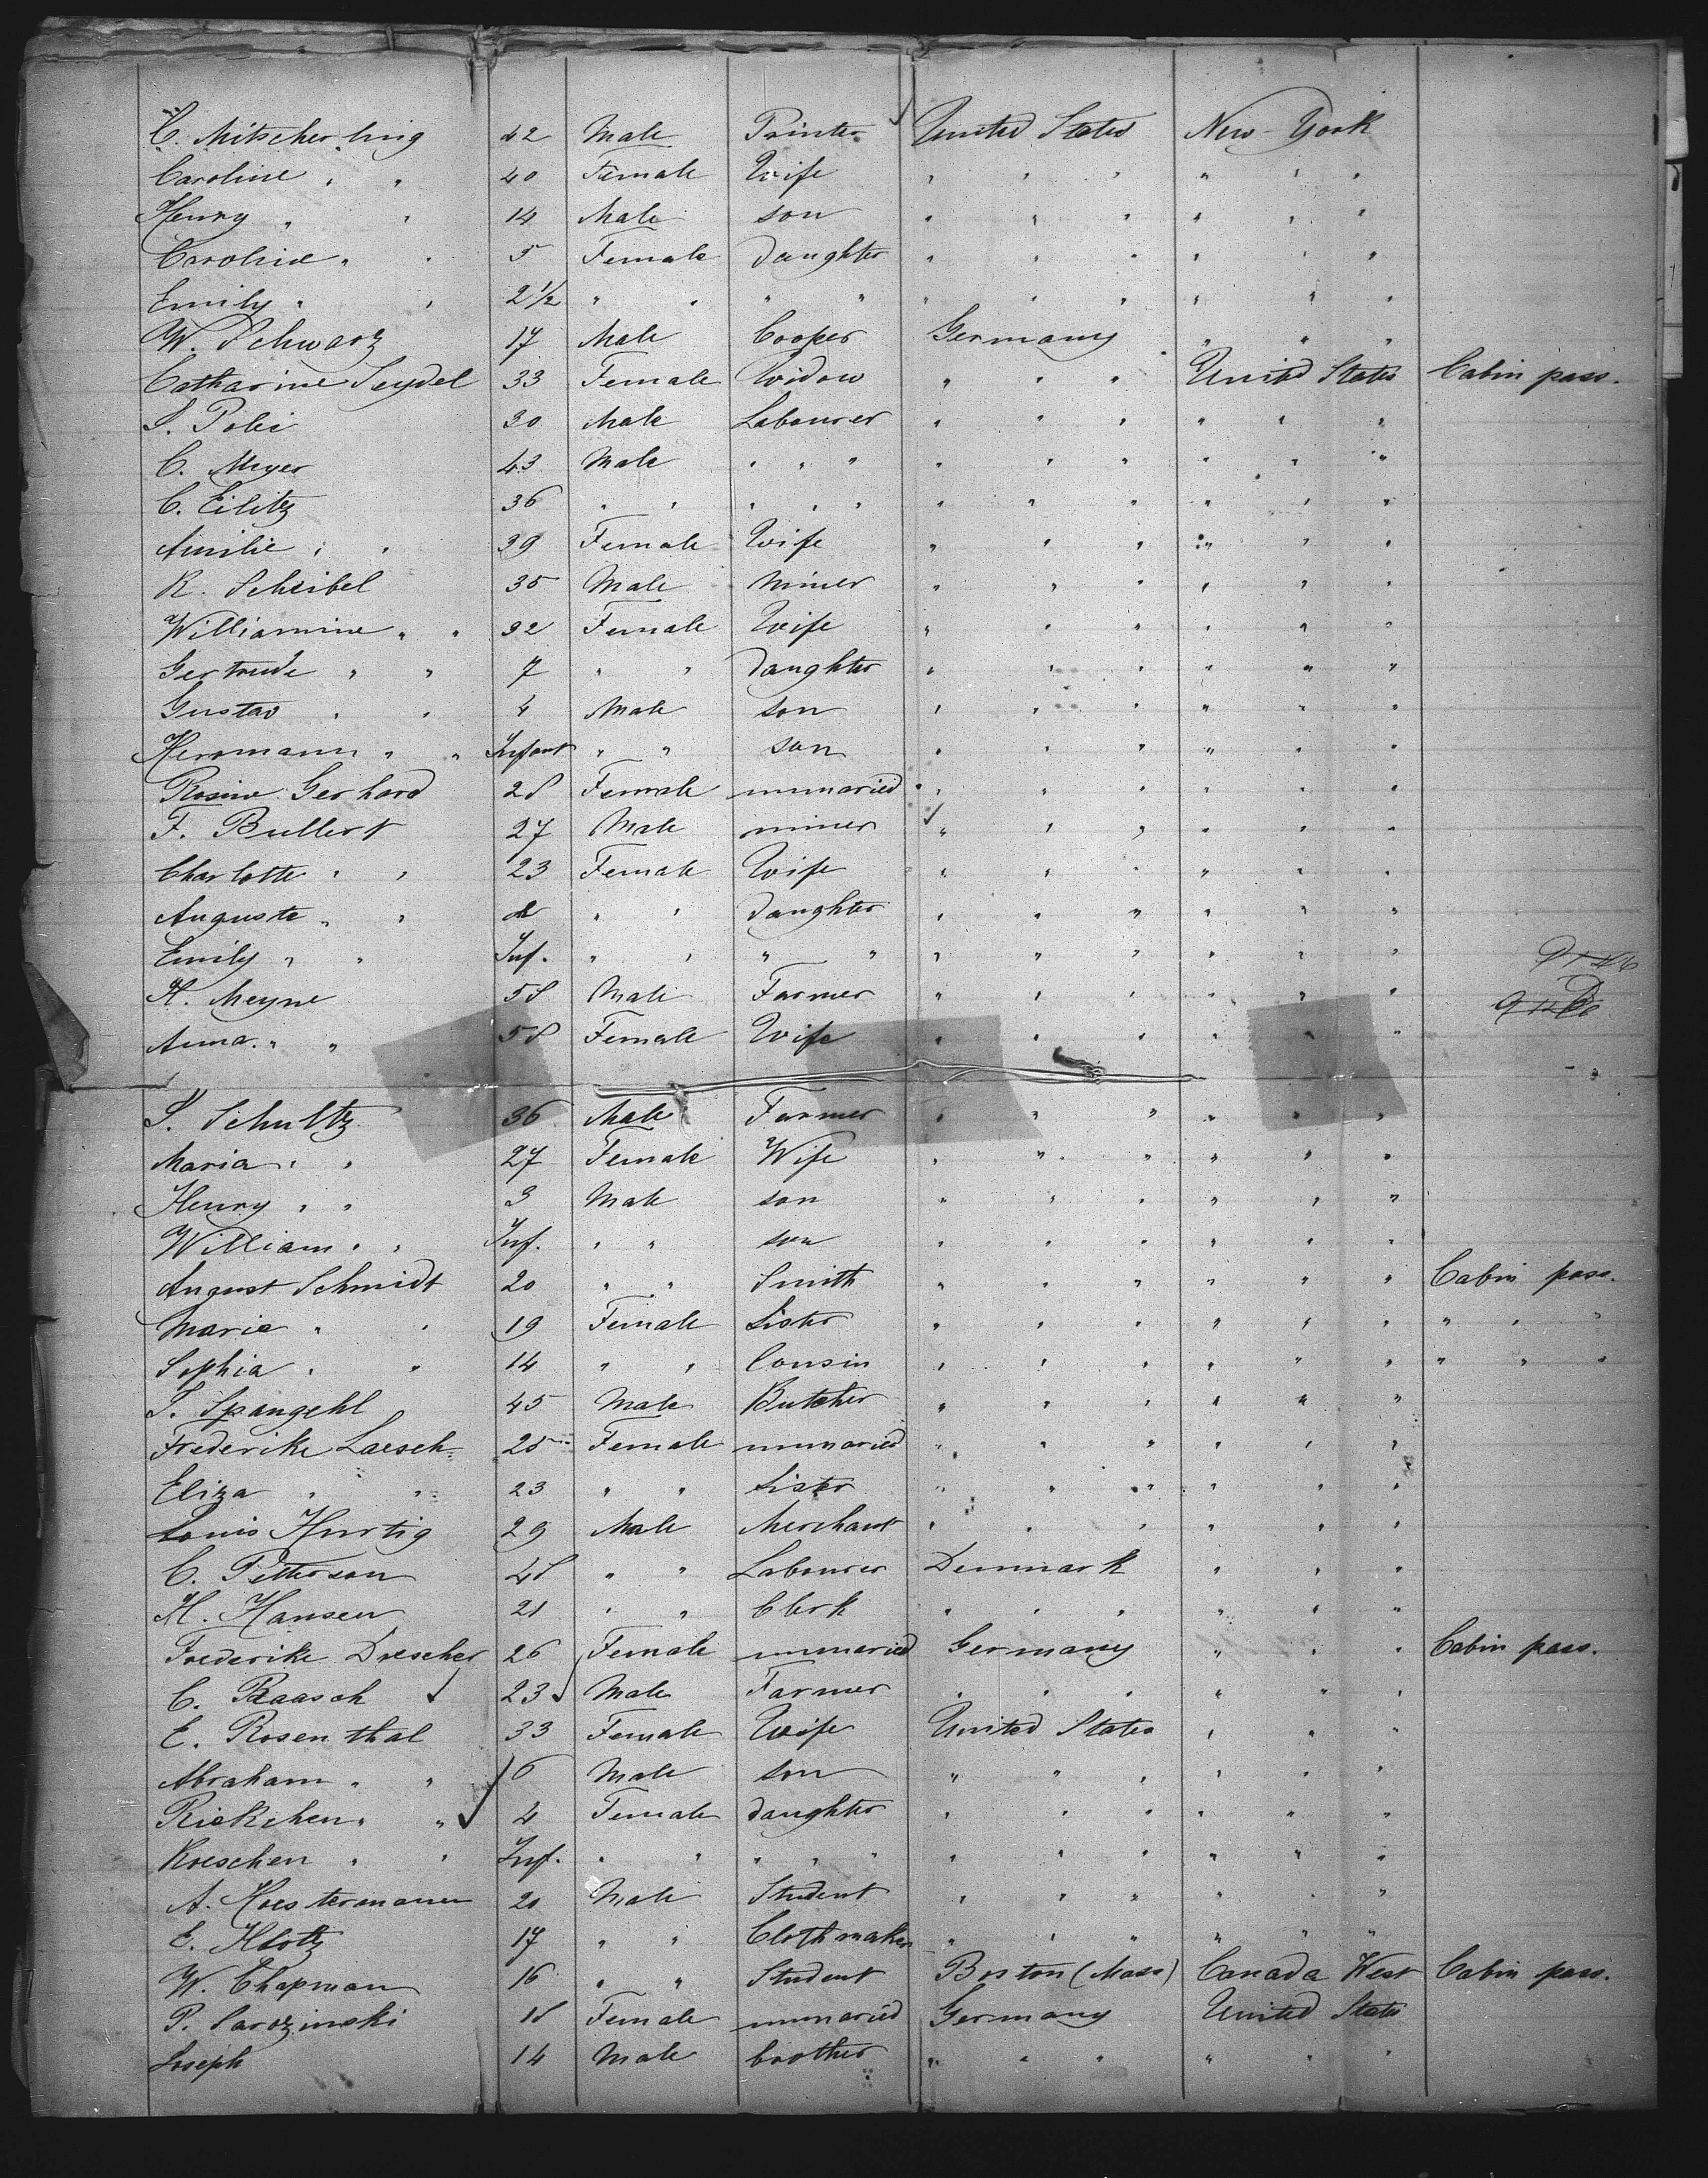 C. Mitscherling 42 Male Painter United States New-York
Caroline " " 40 Female Wife " " " " " "
Henry " " 14 Male son " " " " " "
Caroline " " 5 Female daughter " " " " " "
Emily " " 2½ " " " " " " " " " "
W. Schwarz 17 Male Cooper Germany " " "
Catharine Seydel 33 Female Widow " " " United States Cabin pass.
S. Polei 30 Male Labourer " " " " " "
C. Meyer 43 Male " " " " " " " " "
C. Eilitz 36 " " " " " " " " " " "
Amilie " " 39 Female Wife " " " " " "
R. Scheibel 35 Male miner " " " " " "
Williamine " " 32 Female Wife " " " " " "
Gertrude " " 7 " " daughter " " " " " "
Gustav " " 4 Male son " " " " " "
Herrmann " " Infant " " son " " " " " "
Rosine Gerhard 28 Female unmaried " " " " " "
F. Bullert 27 Male miner " " " " " "
Charlotte " " 23 Female Wife " " " " " "
Auguste " " " " daughter " " " " " "
Emily " " Inf. " " " " " " " " " "
H. Meyne 58 Male Farmer " " " " " "
Anna " " 58 Female Wife " " " " " "
S. Schultz 36 Male Farmer " " " " " "
Maria " " 27 Female Wife " " " " " "
Henry " " 3 Male son " " " " " "
William " " Inf. " " son " " " " " "
August Schmidt 20 " " Smith " " " " " " Cabin pass.
Marie " " 19 Female Sister " " " " " " " " "
Sophia " " 14 " " Cousin " " " " " " " " "
S. Spangehl 45 Male Butcher " " " " " "
Frederike Laesch 25 Female unmaried " " " " " "
Eliza " " 23 " " Sister " " " " " "
Louis Hurtig 29 Male Merchant " " " " " "
C. Petterson 48 " " Labourer Denmark " " "
H. Hansen 21 " " Clerk " " " " " "
Frederike Drescher 26 Female unmaried Germany " " " Cabin pass.
C. Raasch 23 Male Farmer " " " " " "
E. Rosenthal 33 Female Wife United States " " "
Abraham " " 6 Male son " " " " " "
Riekchen " " 4 Female daughter " " " " " "
Roeschen " " Inf. " " " " " " " " " " "
A. Hoestermann 20 Male Student " " " " " "
E. Klotz 17 " " Clothmaker " " " " " "
W. Chapman 16 " " Student Boston (Mass) Canada West Cabin pass.
P. Sarozinski 18 Female unmaried Germany United States
Joseph 14 Male brother " " " " " "